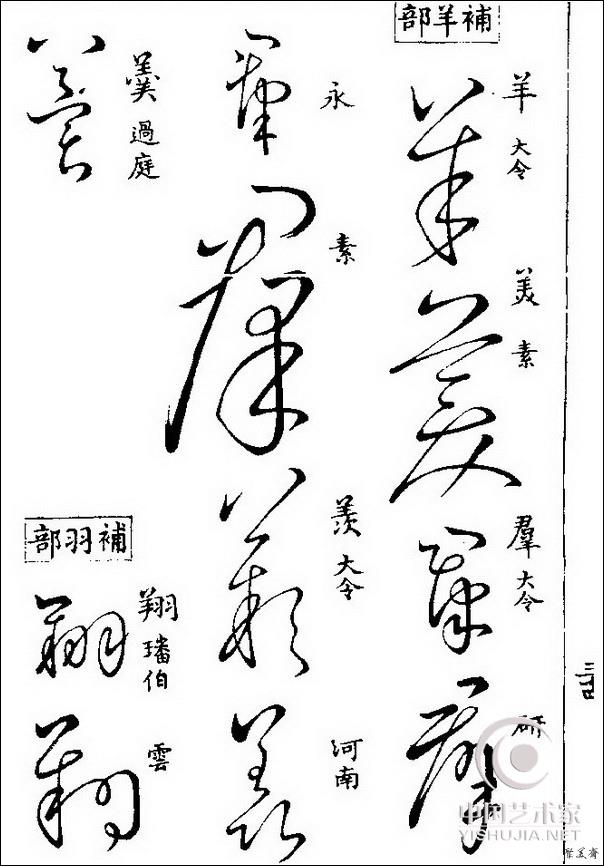 補羊部
羊 大令
美 素
羣 大令
研
永
素
羨 大令
河南
羹 過庭
補羽部
翔 璠伯
雲
三四
中国艺术家
YISHUJIA.NET